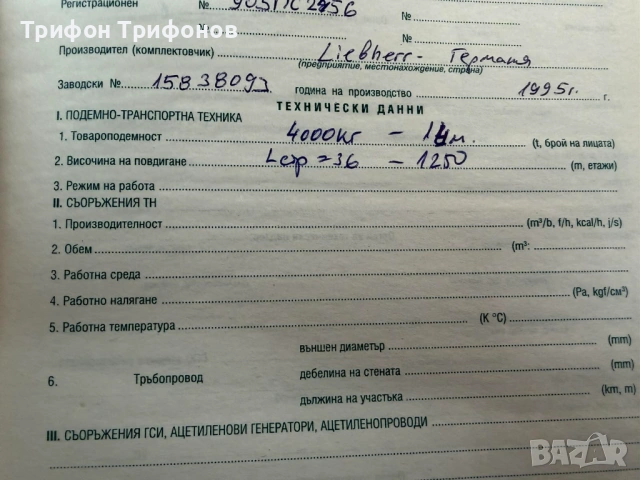 Трифон Трифонов
Регистрационен № № №
№ №
Производител (комплектовчик) Liebherr - Германия
(предприятие, местонахождение, страна)
Заводски № година на производство 1995г. г.
ТЕХНИЧЕСКИ ДАННИ
I. ПОДЕМНО-ТРАНСПОРТНА ТЕХНИКА
1. Товароподемност 4000кг - 14м. (t, брой на лицата)
2. Височина на повдигане Lстр = 36 - 1250 (m, етажи)
3. Режим на работа
II. СЪОРЪЖЕНИЯ ТН
1. Производителност (m³/b, f/h, kcal/h, j/s)
2. Обем (m³:
3. Работна среда
4. Работно налягане (Pa, kgf/см³)
5. Работна температура (K °C)
външен диаметър (mm)
6. Тръбопровод дебелина на стената (mm)
дължина на участъка (km, m)
III. СЪОРЪЖЕНИЯ ГСИ, АЦЕТИЛЕНОВИ ГЕНЕРАТОРИ, АЦЕТИЛЕНОПРОВОДИ
BAZAR